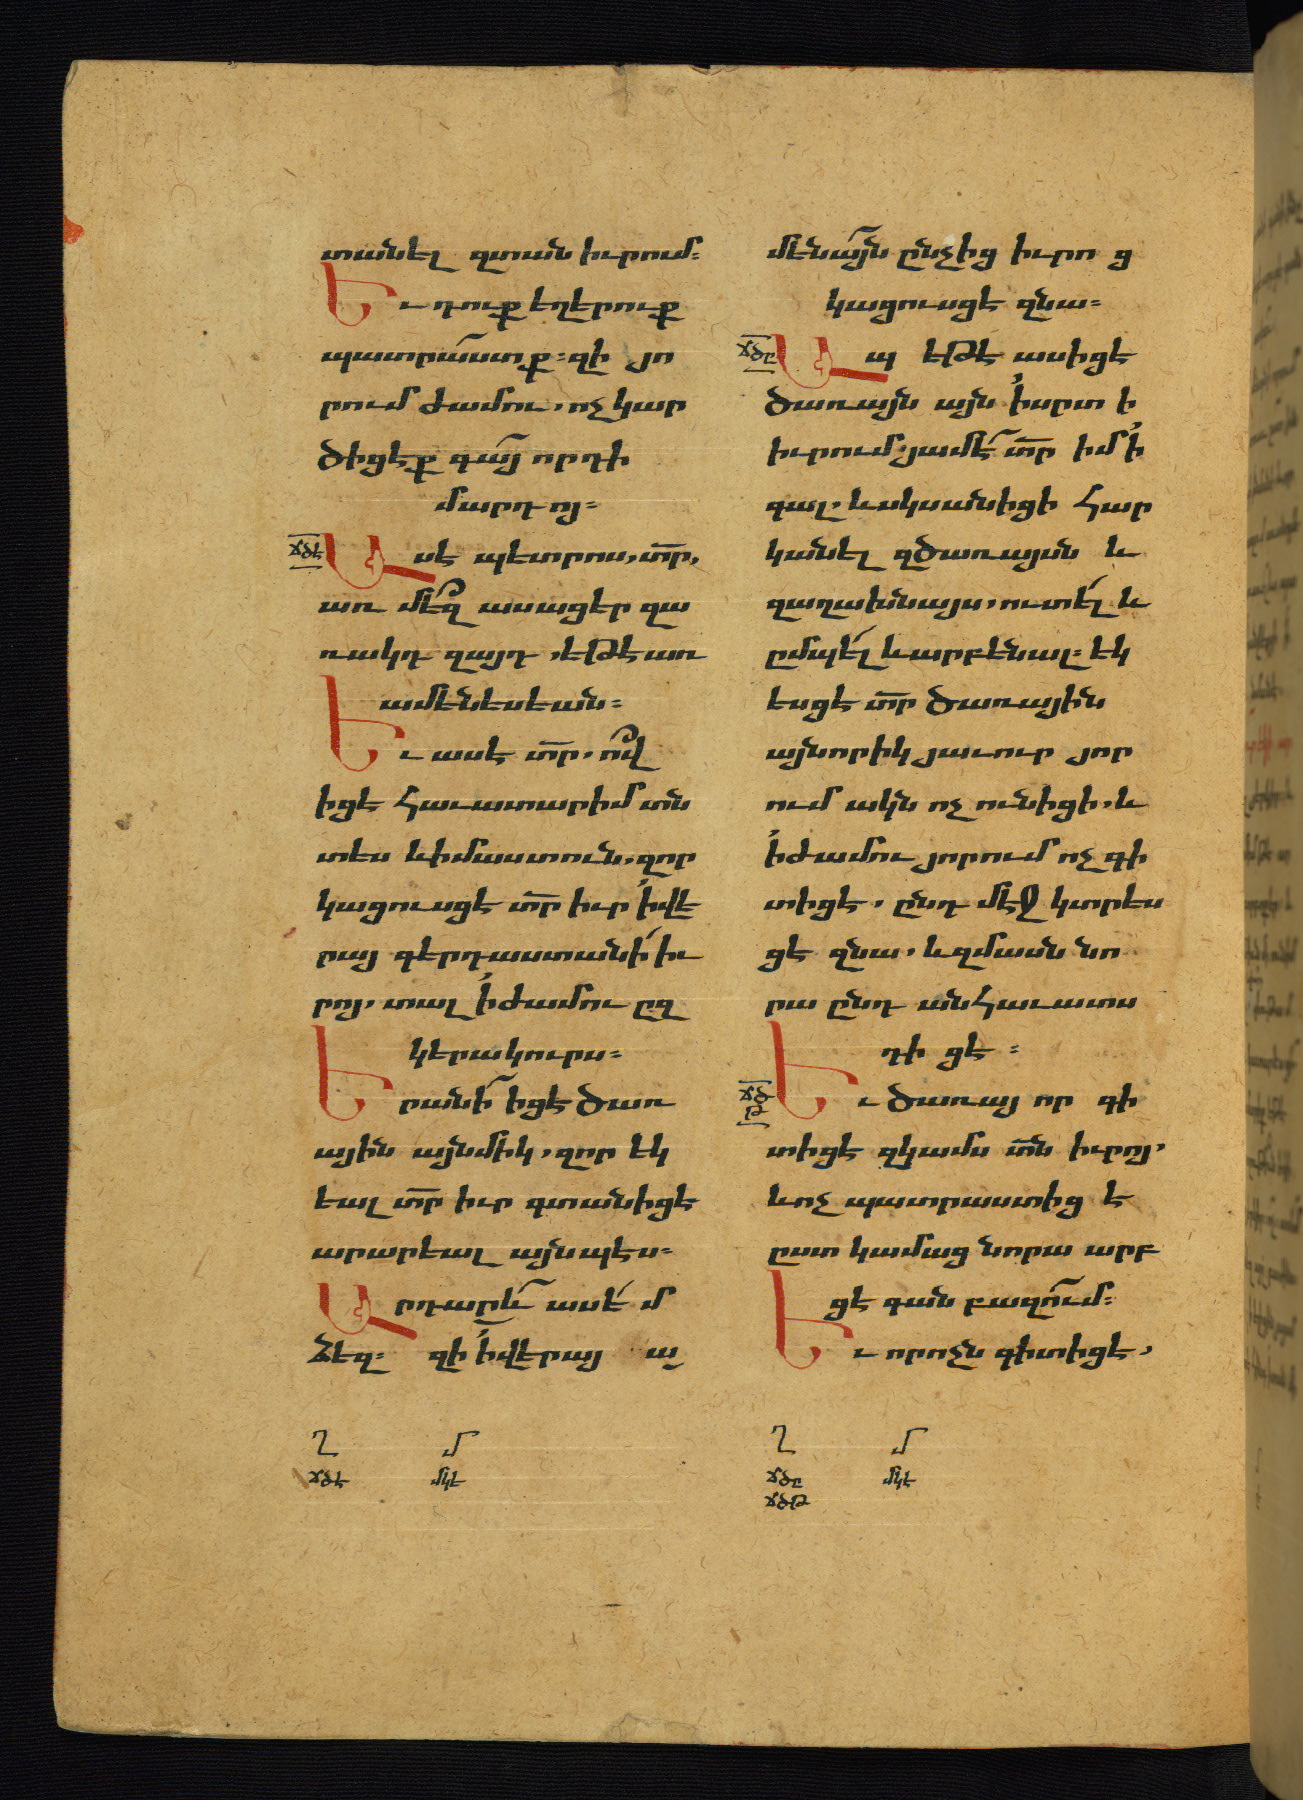 տանել զտան իւրում։
Եւ դուք եղերուք
պատրաստք։ զի յո
րում ժամու, ոչ կար
ծիցէք գայ որդի
մարդոյ։
ՃԾԷ Ասէ պետրոս, տր,
առ մեզ ասացեր զա
ռակդ զայդ, եթէ առ
ամենեսեան։
Եւ ասէ տր. ով
իցէ հաւատարիմ տն
տես և իմաստուն, զոր
կացուսցէ տր իւր ի վե
րայ գերդաստանի իւ
րոյ. տալ ի ժամու ըզ
կերակուրս։
Երանի իցէ ծառ
ային այնմիկ, զոր եկ
եալ տր իւր գտանիցէ
արարեալ այնպէս։
Արդարև ասեմ
ձեզ։ զի ի վերայ ա
Ղ Մ
ՃԾԷ ՄԿԷ
մենայն ընչից իւրոց
կացուսցէ զնա։
ՃԾԸ Ապ եթէ ասիցէ
ծառայն այն ի սրտի
իւրում. յամէ տր իմ ի
գալ. և սկսանիցի հար
կանել զծառայսն և
զաղախնայս, ուտել և
ըմպել և արբենալ։ եկ
եսցէ տր ծառային
այնորիկ յաւուր յոր
ում ակն ոչ ունիցի, և
ի ժամու յորում ոչ գի
տիցէ, ընդ մէջ կտրես
ցէ զնա, և զմասն նո
րա ընդ անհաւատս
դիցէ։
ՃԾԹ Եւ ծառայ որ գի
տիցէ զկամս տն իւրոյ,
և ոչ պատրաստիցէ
ըստ կամաց նորա արբ
ցէ գան բազում։
Եւ որոչն գիտիցէ,
Ղ Մ
ՃԾԸ ՄԿԷ
ՃԾԹ